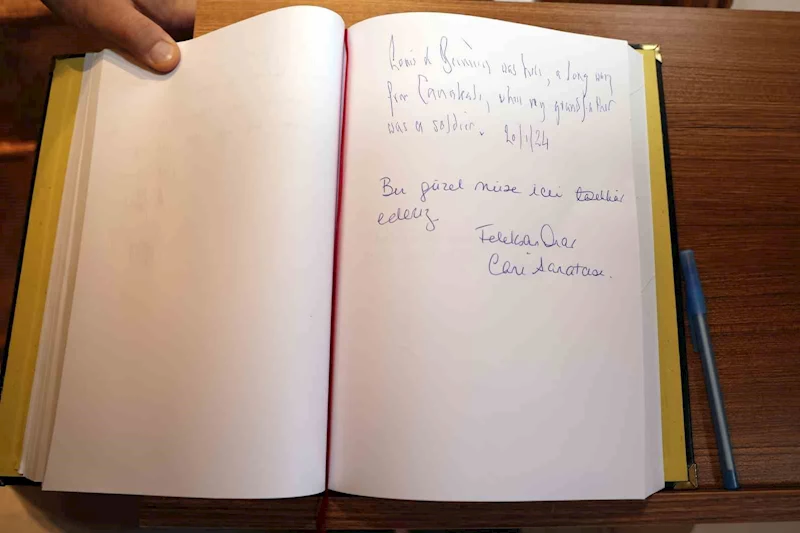 Louis de Bernières was here, a long way
from Canakkale, when my grandfather
was a soldier. 20/1/24
Bu güzel müze için teşekkür
ederiz
Feleksan Onar